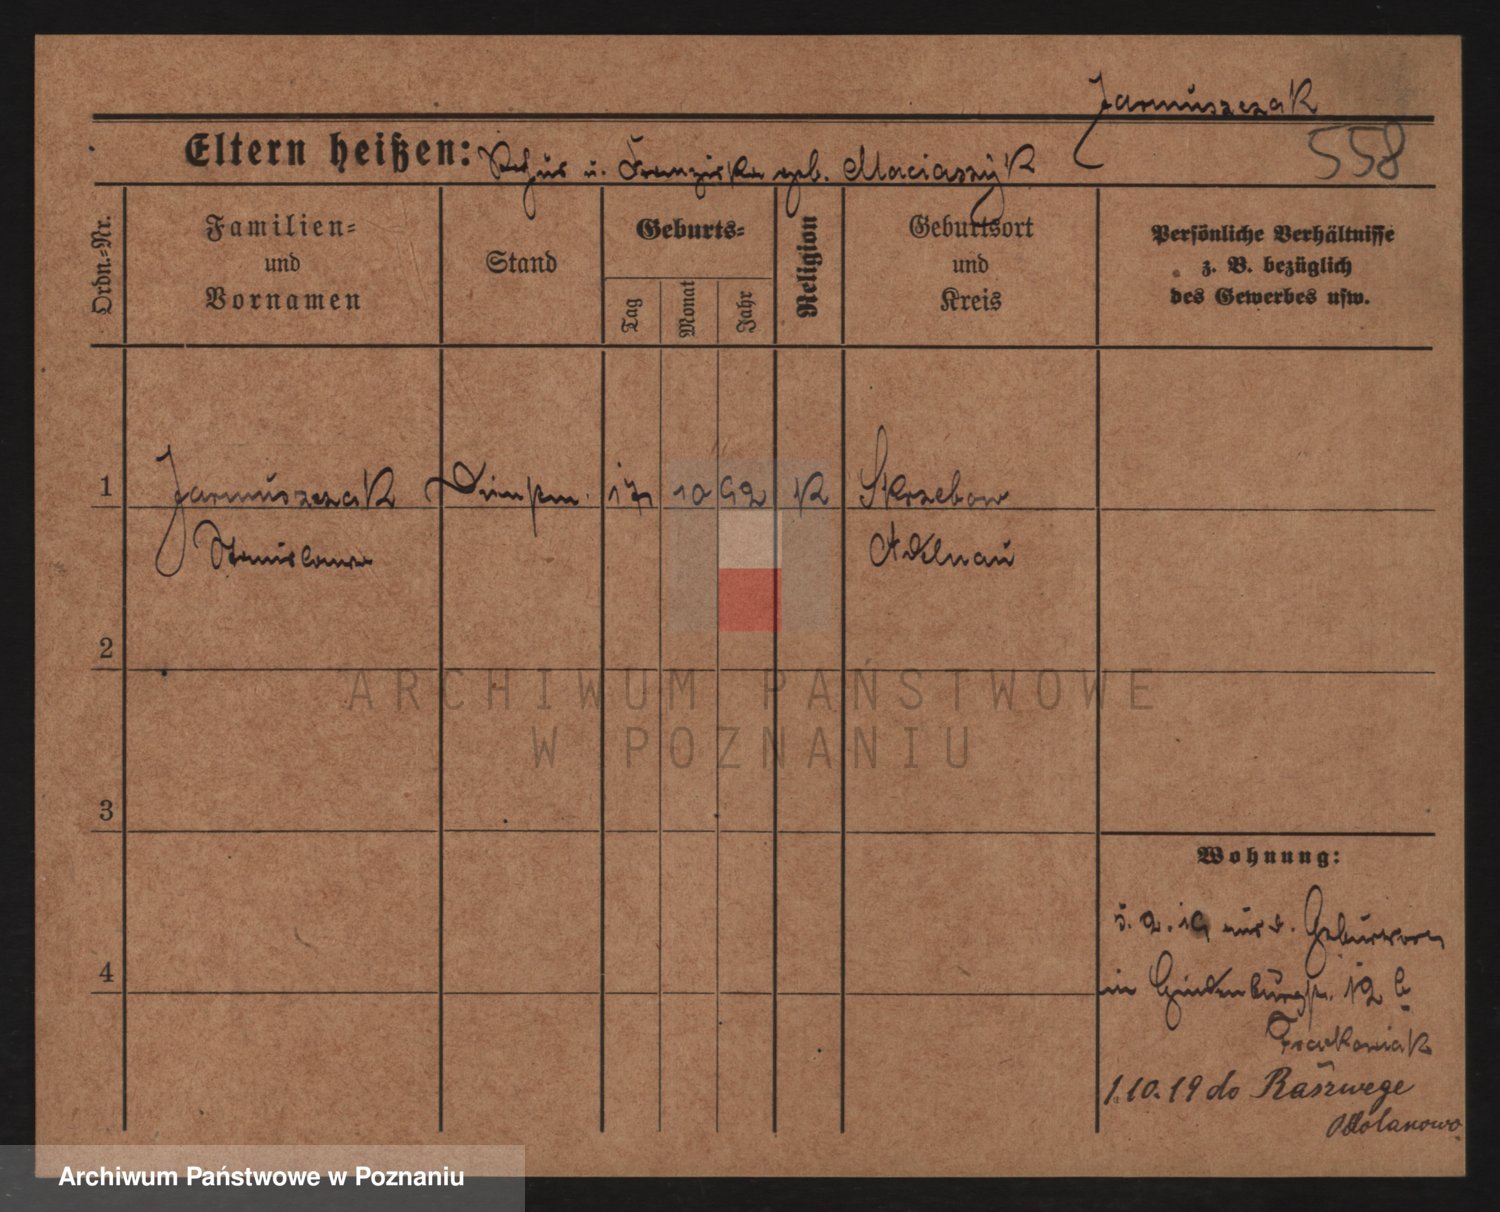 Jarmuszczak
558
Eltern heißen: u. Franziska geb. Maciaszyk
Ordn.-Nr.
Familien-
und
Vornamen
Stand
Geburts-
Tag
Monat
Jahr
Religion
Geburtsort
und
Kreis
Persönliche Verhältnisse
z. B. bezüglich
des Gewerbes usw.
1
Jarmuszczak
Dienstm.
17
10
92
K
Skrzebow
Stanislawa
Adelnau
2
3
4
Wohnung:
5. 2. 19 aus d. Geburtsort
in Hindenburgstr. 12 b
Frackowiak
1.10.19 do Raszwege
Odolanowo
ARCHIWUM PAŃSTWOWE
W POZNANIU
Archiwum Państwowe w Poznaniu